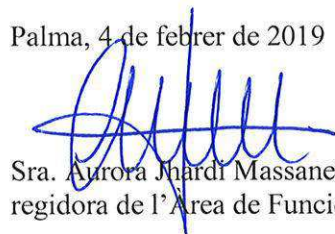 Palma, 4 de febrer de 2019
Sra. Aurora Jhardi Massane
regidora de l'Àrea de Funció